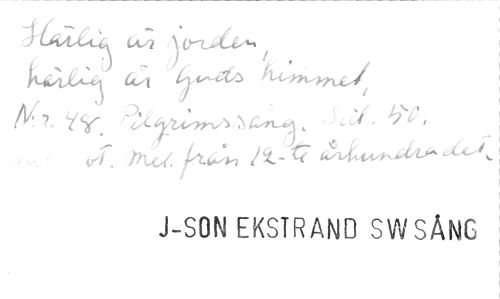 Härlig är jorden,
härlig är Guds himmel,
N:r. 48. Pilgrimssång. Sid. 50.
not. Mel. från 12-te århundradet.
J-SON EKSTRAND SW SÅNG